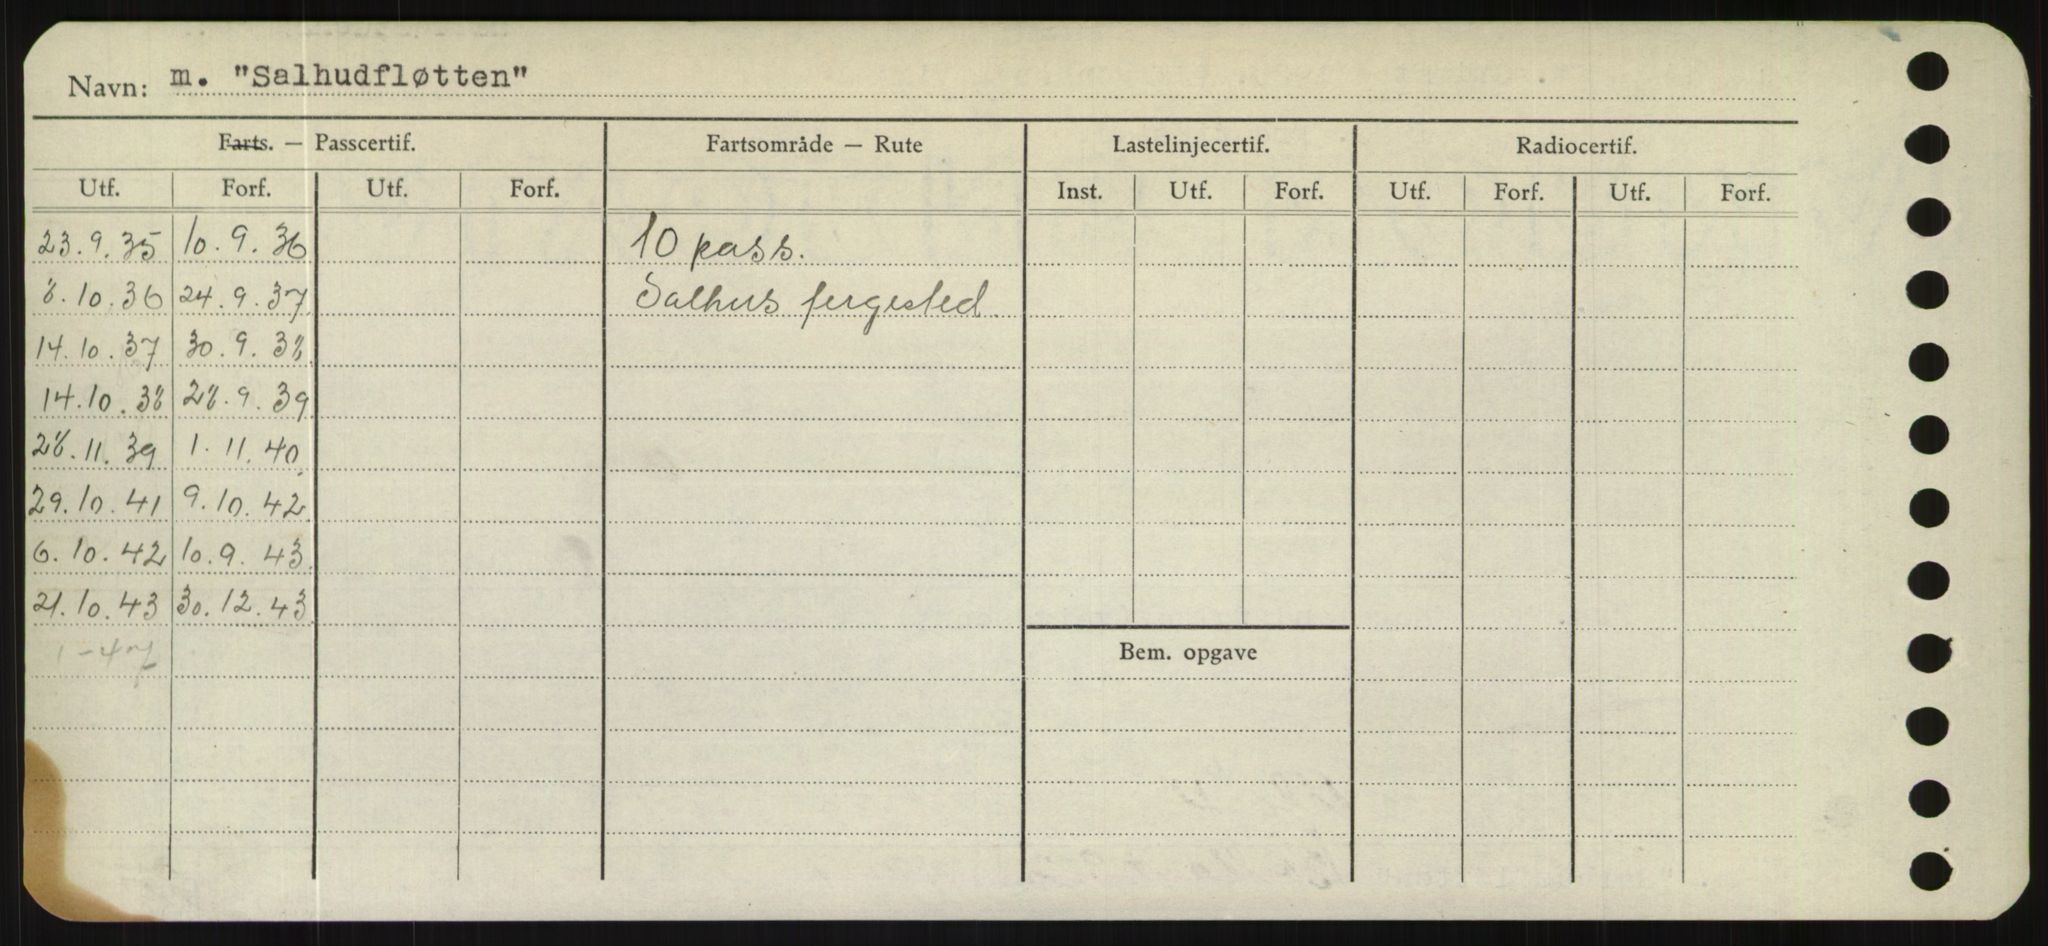 Navn: m. "Salhudfløtten"
Farts. — Passcertif. Fartsområde — Rute Lastelinjecertif. Radiocertif.
Utf. Forf. Utf. Forf. Inst. Utf. Forf. Utf. Forf. Utf. Forf.
23.9.35 10.9.36 10 pass.
8.10.36 24.9.37 Salhus fergested.
14.10.37 30.9.38.
14.10.38 28.9.39
28.11.39 1.11.40
29.10.41 9.10.42
6.10.42 10.9.43.
21.10.43 30.12.43.
1-47
Bem. opgave